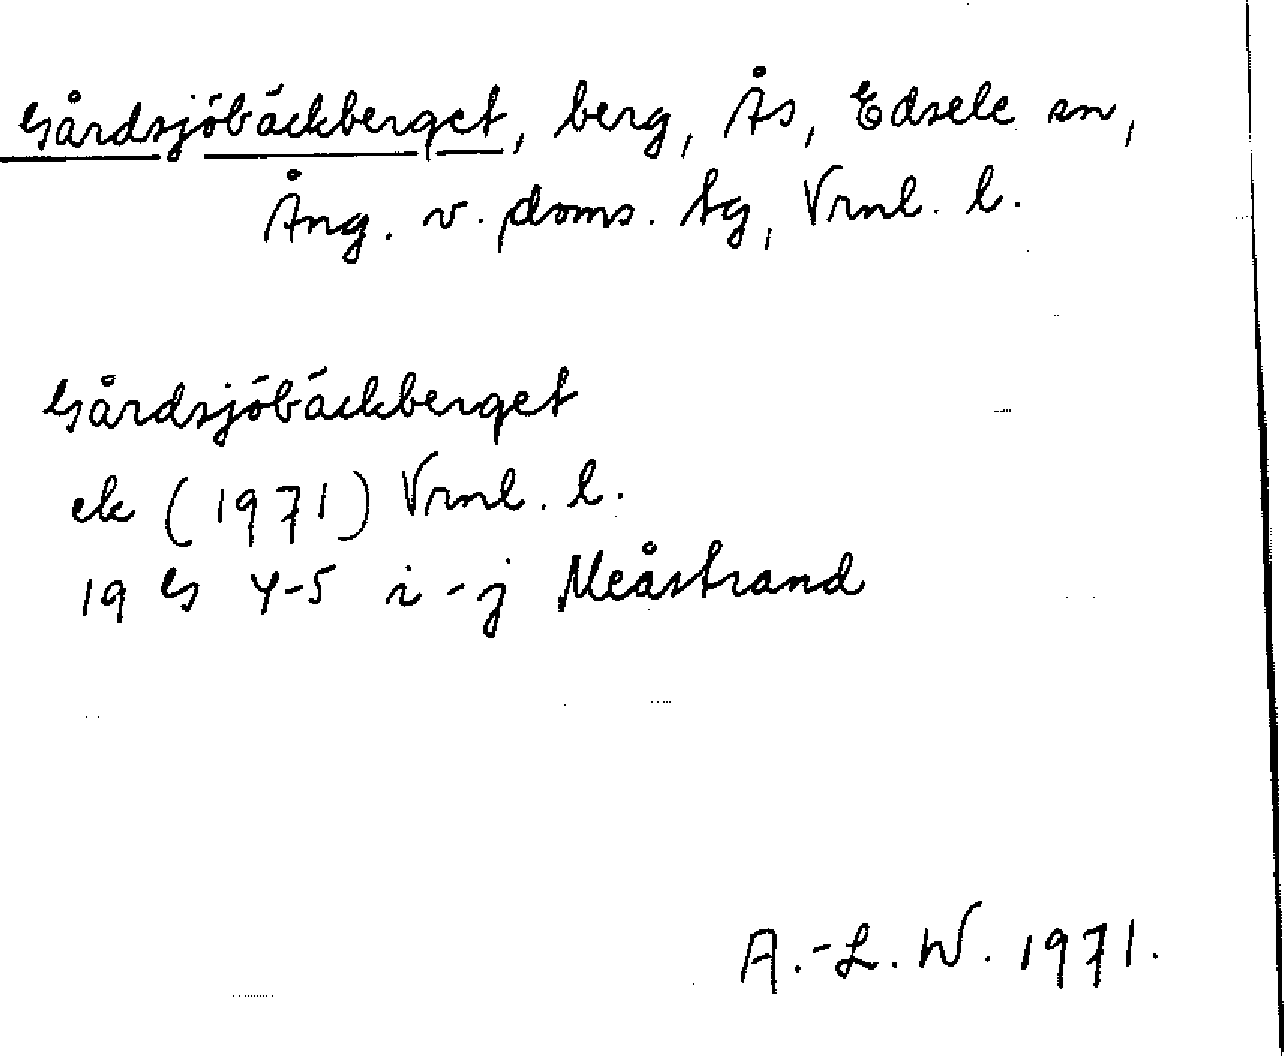 Gårdsjöbäckberget, berg, Ås, Edsele sn,
Ång. v. doms. tg, Vrnl. l.
Gårdsjöbäckberget
ek (1971) Vrnl. l.
19 G 4-5 i-j Meåstrand
A.-L. W. 1971.